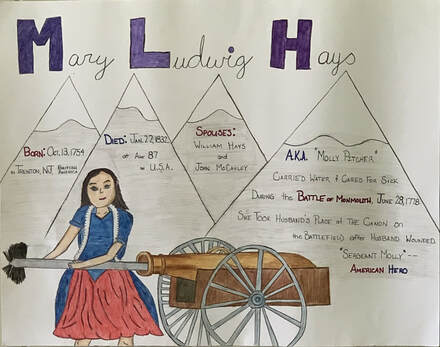 Mary Ludwig Hays
Born: Oct. 13, 1754
in Trenton, N.J., British
America
Died: Jan. 22, 1832
at Age 87
in U.S.A.
Spouses:
William Hays
and
John McCauley
A.K.A. "Molly Pitcher"
Carried Water & Cared For Sick
During the Battle of Monmouth, June 28, 1778
She Took Husband's Place at the Canon on
the Battlefield after Husband Wounded.
"Sergeant Molly" --
American Hero